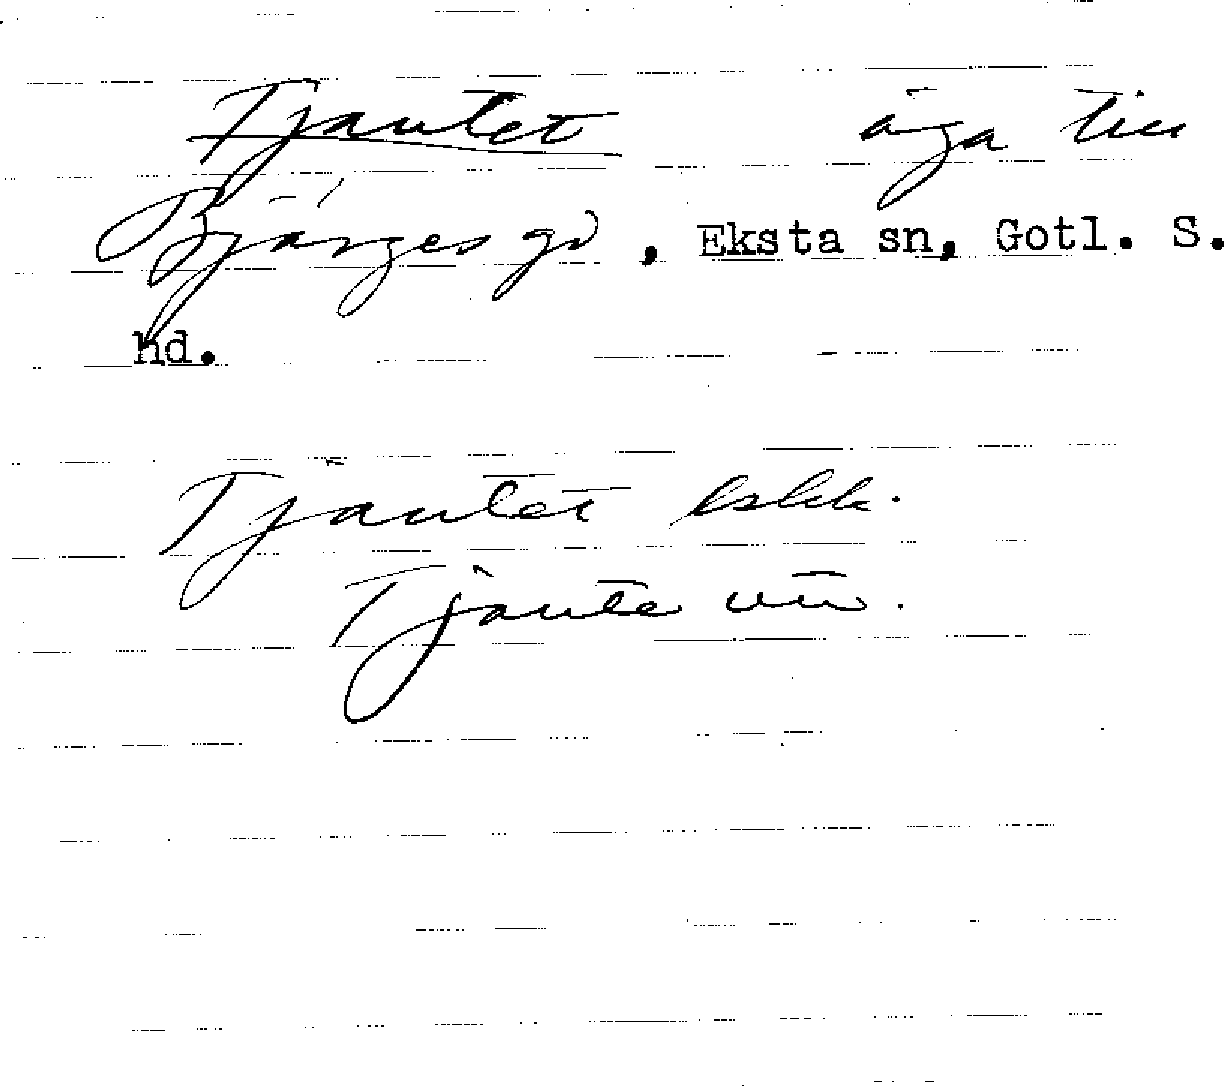 Tjautet äga till
Bjärges gd, Eksta sn, Gotl. S.
hd.
Tjautet
Tjaute